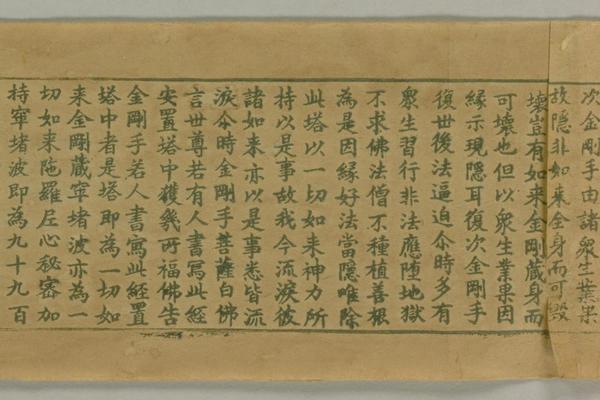 次金剛手由諸衆生業果
故隱非如来全身而可毀
壞豈有如来金剛藏身而
可壞也但以衆生業果因
縁示現隱耳復次金剛手
復世後法逼迫尒時多有
衆生習行非法應堕地獄
不求佛法僧不種植善根
為是因縁妙法當隱唯除
此塔以一切如来神力所
持以是事故我今流淚彼
諸如来亦以是事悉皆流
淚尒時金剛手菩薩白佛
言世尊若有人書寫此經
安置塔中獲幾所福佛告
金剛手若人書寫此經置
塔中者是塔即為一切如
来金剛藏窣堵波亦為一
切如来陁羅尼心秘密加
持窣堵波即為九十九百